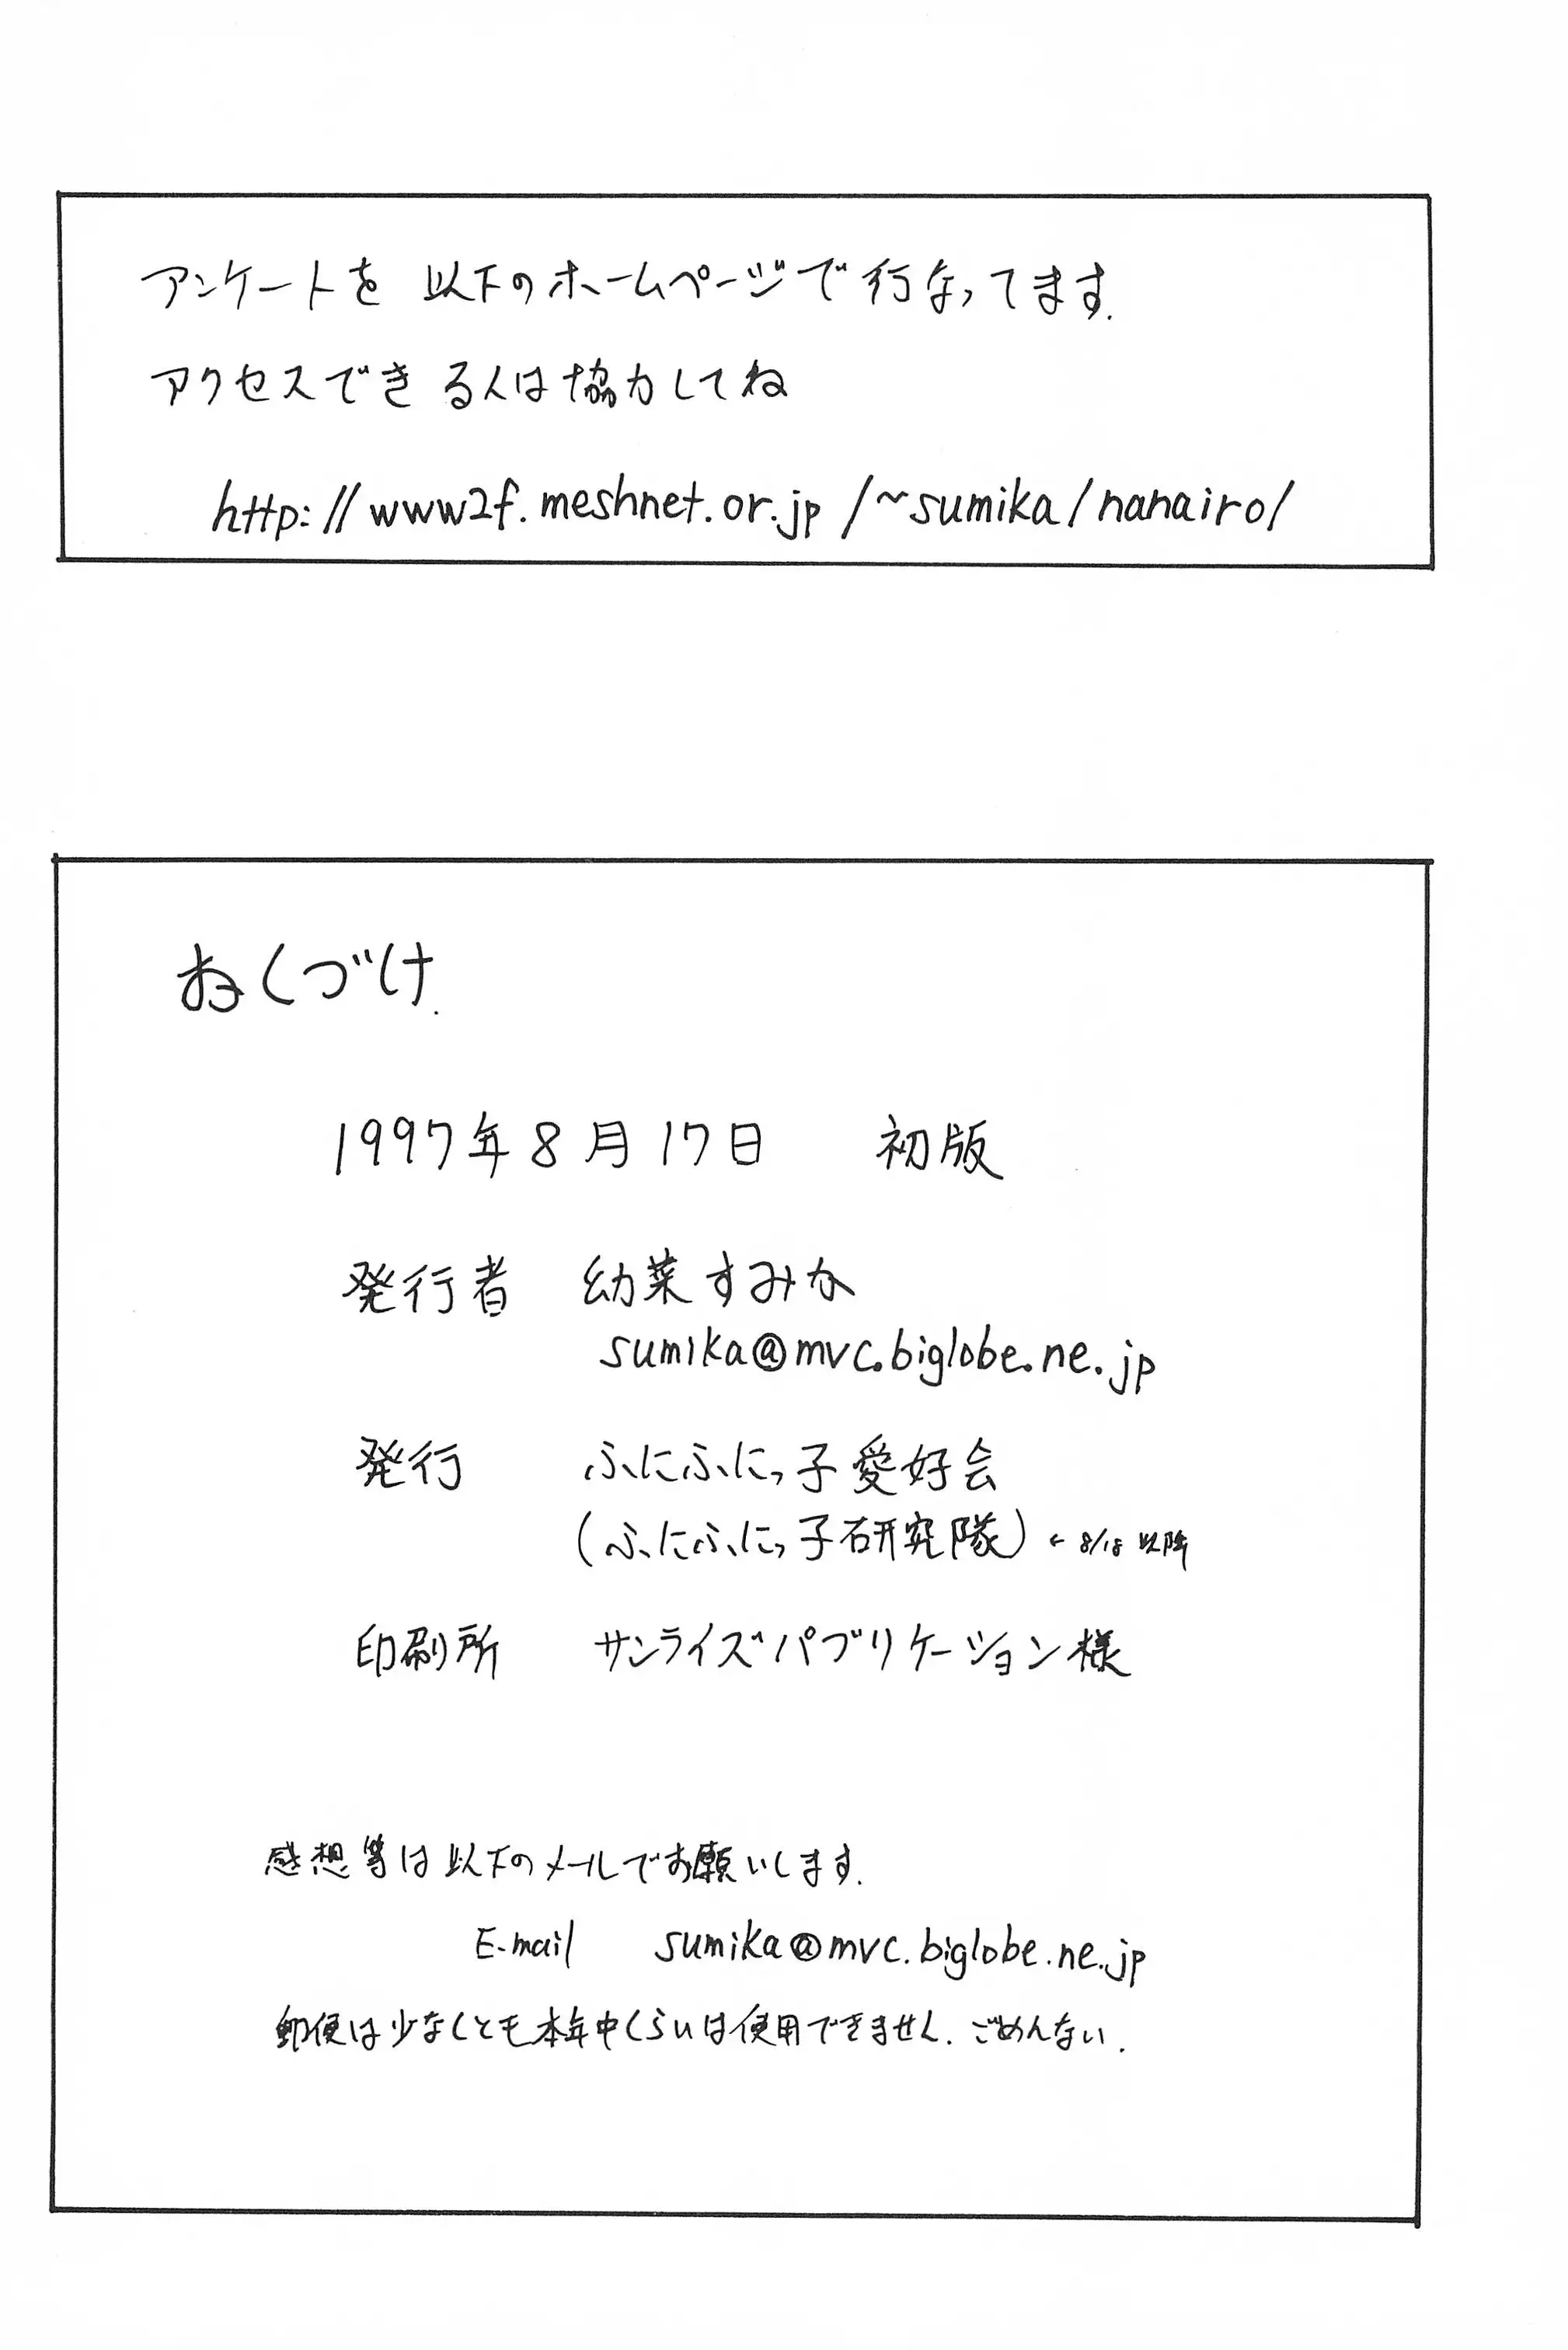 アンケートを 以下のホームページで行なってます.
アクセスできる人は協力してね
http://www2f.meshnet.or.jp/~sumika/nanairo/
おくづけ.
1997年8月17日 初版
発行者 幼菜すみか
sumika@mvc.biglobe.ne.jp
発行 ふにふにっ子愛好会
(ふにふにっ子研究隊) ← 8/18 以降
印刷所 サンライズパブリケーション様
感想等は以下のメールでお願いします.
E-mail sumika@mvc.biglobe.ne.jp
郵便は少なくとも本年中くらいは使用できません. ごめんない.